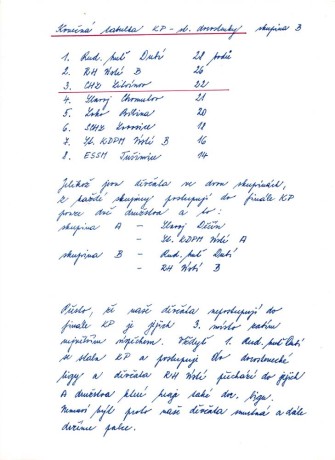 Konečná tabulka KP - st. dorostenky skupina B
1. Rud. huť Dubí 28 bodů
2. RH Ústí B 26
3. CHZ Litvínov 22
4. Slavoj Chomutov 21
5. Loko Bílina 20
6. SCHZ Lovosice 18
7. Sl. KDPM Ústí B 16
8. ESSM Tušimice 14
Jelikož jsou děvčata ve dvou skupinách,
z každé skupiny postupují do finále KP
pouze dvě družstva a to:
skupina A - Slavoj Děčín
- Sl. KDPM Ústí A
skupina B - Rud. huť Dubí
- RH Ústí B
Přesto, že naše děvčata nepostupují do
finále KP je jejich 3. místo zatím
největším úspěchem. Vždyť 1. Rud. huť Dubí
se stala KP a postupuje do dorostenecké
ligy a děvčata RH Ústí přechází do jejich
A družstva které hrají také dor. ligu.
Nemusí být proto naše děvčata smutná a dále
držíme palce.